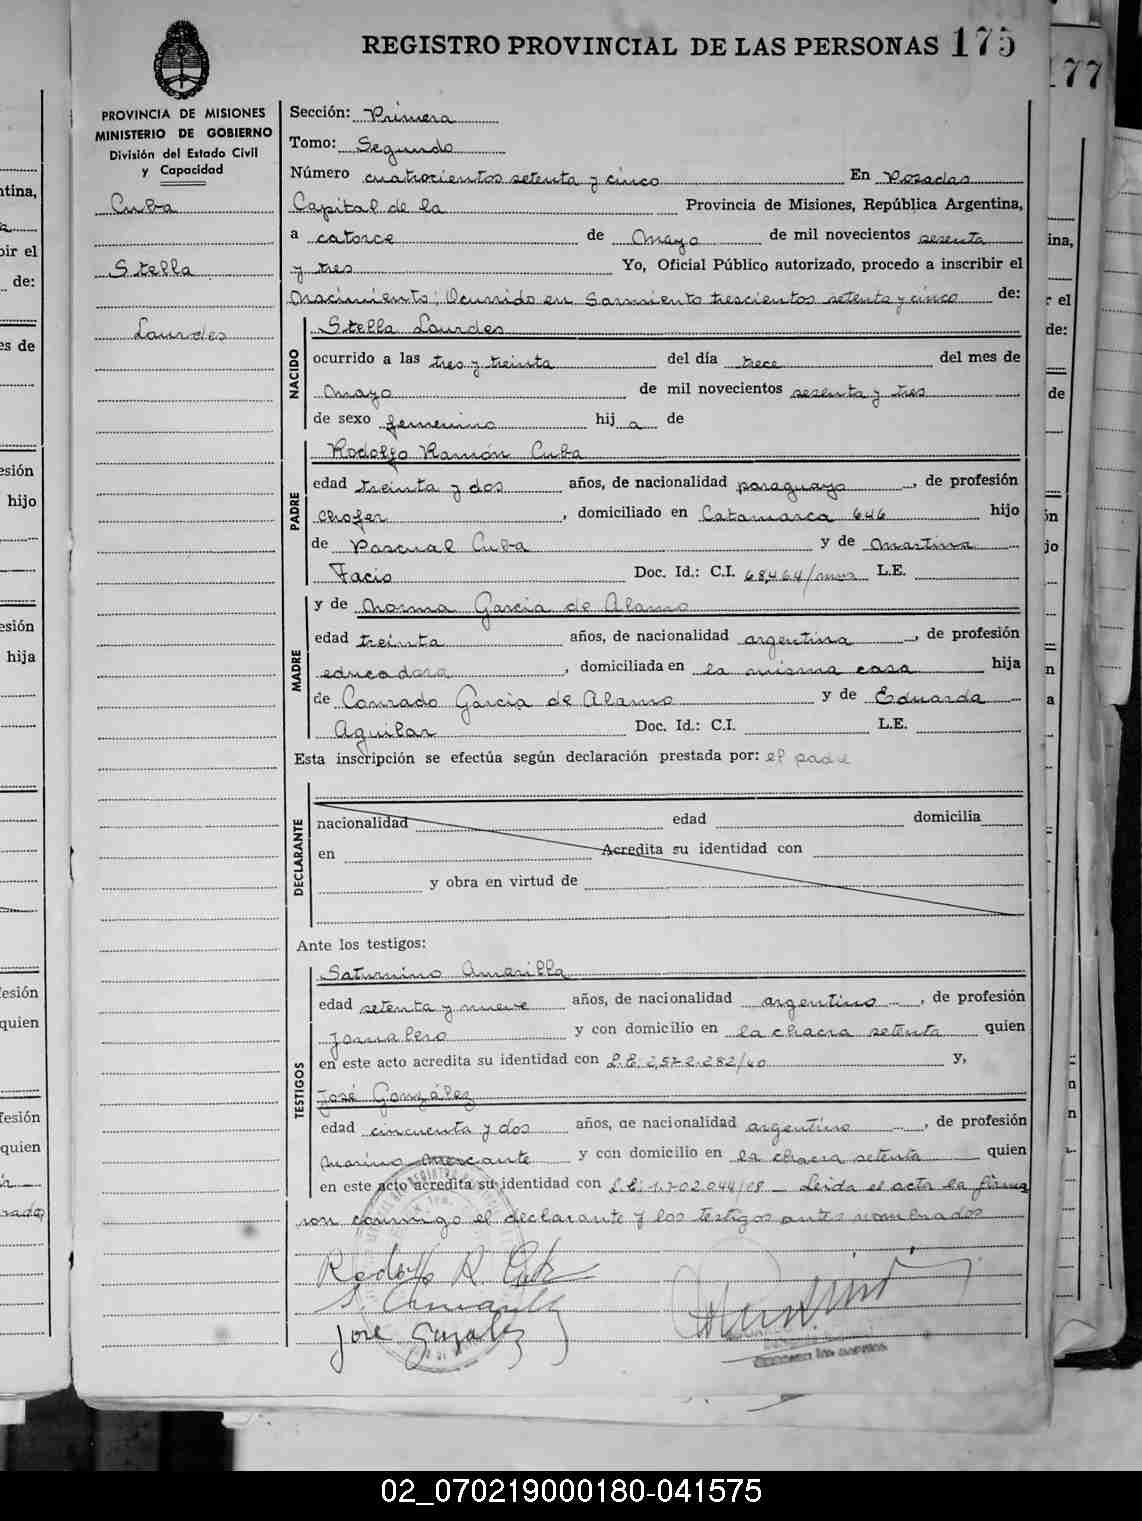 REGISTRO PROVINCIAL DE LAS PERSONAS 175
177
PROVINCIA DE MISIONES
MINISTERIO DE GOBIERNO
División del Estado Civil
y Capacidad
Cuba
Stella
Lourdes
Sección: Primera
Tomo: Segundo
Número cuatrocientos setenta y cinco En Posadas
Capital de la Provincia de Misiones, República Argentina,
a catorce de Mayo de mil novecientos sesenta
y tres Yo, Oficial Público autorizado, procedo a inscribir el
Nacimiento: Ocurrido en Sarmiento trescientos setenta y cinco de:
NACIDO
Stella Lourdes
ocurrido a las tres y treinta del día trece del mes de
Mayo de mil novecientos sesenta y tres
de sexo femenino hija de
PADRE
Rodolfo Ramón Cuba
edad treinta y dos años, de nacionalidad paraguayo, de profesión
chofer, domiciliado en Catamarca 646 hijo
de Pascual Cuba y de Martina
Facio Doc. Id.: C.I. 68,464/ L.E.
MADRE
y de Norma Garcia de Alamo
edad treinta años, de nacionalidad argentina, de profesión
educadora, domiciliada en la misma casa hija
de Conrado Garcia de Alamo y de Eduarda
Aguilar Doc. Id.: C.I. L.E.
Esta inscripción se efectúa según declaración prestada por: el padre
DECLARANTE
nacionalidad edad domicilia
en Acredita su identidad con
y obra en virtud de
Ante los testigos:
TESTIGOS
Saturnino Amarilla
edad setenta y nueve años, de nacionalidad argentino, de profesión
Jornalero y con domicilio en la chacra setenta quien
en este acto acredita su identidad con L.E. 2,572.282/40 y,
José González
edad cincuenta y dos años, de nacionalidad argentino, de profesión
Marino Mercante y con domicilio en la chacra setenta quien
en este acto acredita su identidad con L.E. 1.702.044/ Leida el acta la firma
ron conmigo el declarante y los testigos antes nombrados
Rodolfo R. Cuba
S. Amarilla
José Gonzalez
02_070219000180-041575